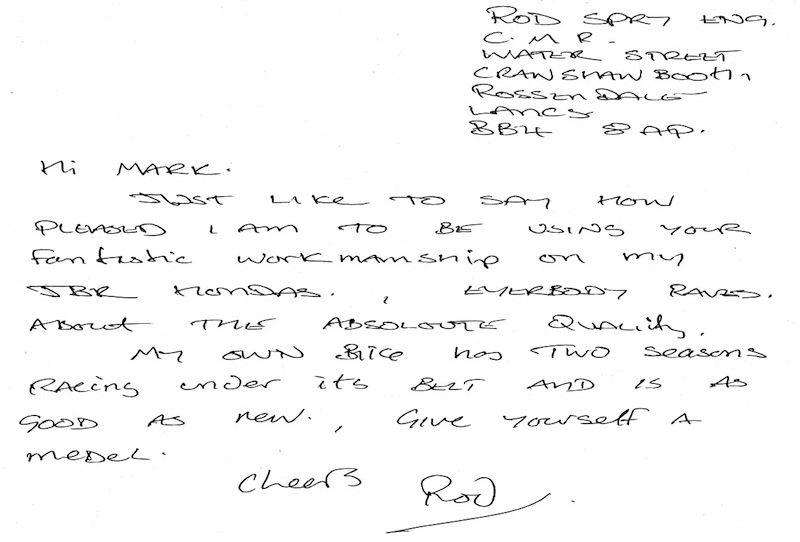 ROD SPRY ENG.
C. M. R.
WATER STREET
CRAWSHAWBOOTH,
ROSSENDALE
LANCS
BB4 8AP.
Hi MARK.
JUST LIKE TO SAY HOW
PLEASED I AM TO BE USING YOUR
fantastic workmanship on my
JBR HONDAS. , EVERBODY RAVES.
ABOUT THE ABSOLOUTE QUALity.
MY OWN BIKE has TWO seasons
RACing under its BELT AND IS AS
GOOD AS new. , GIVE YOURSELF A
meDEL.
cheers Rod.